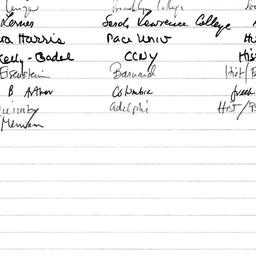 Brooklyn College
Lerner Sarah Lawrence College
Harris Pace Univ
Kelly-Gadol CCNY His
Eisenstein Barnard Hist/
B Arthur Columbia
Quimby Adelphi Hist/